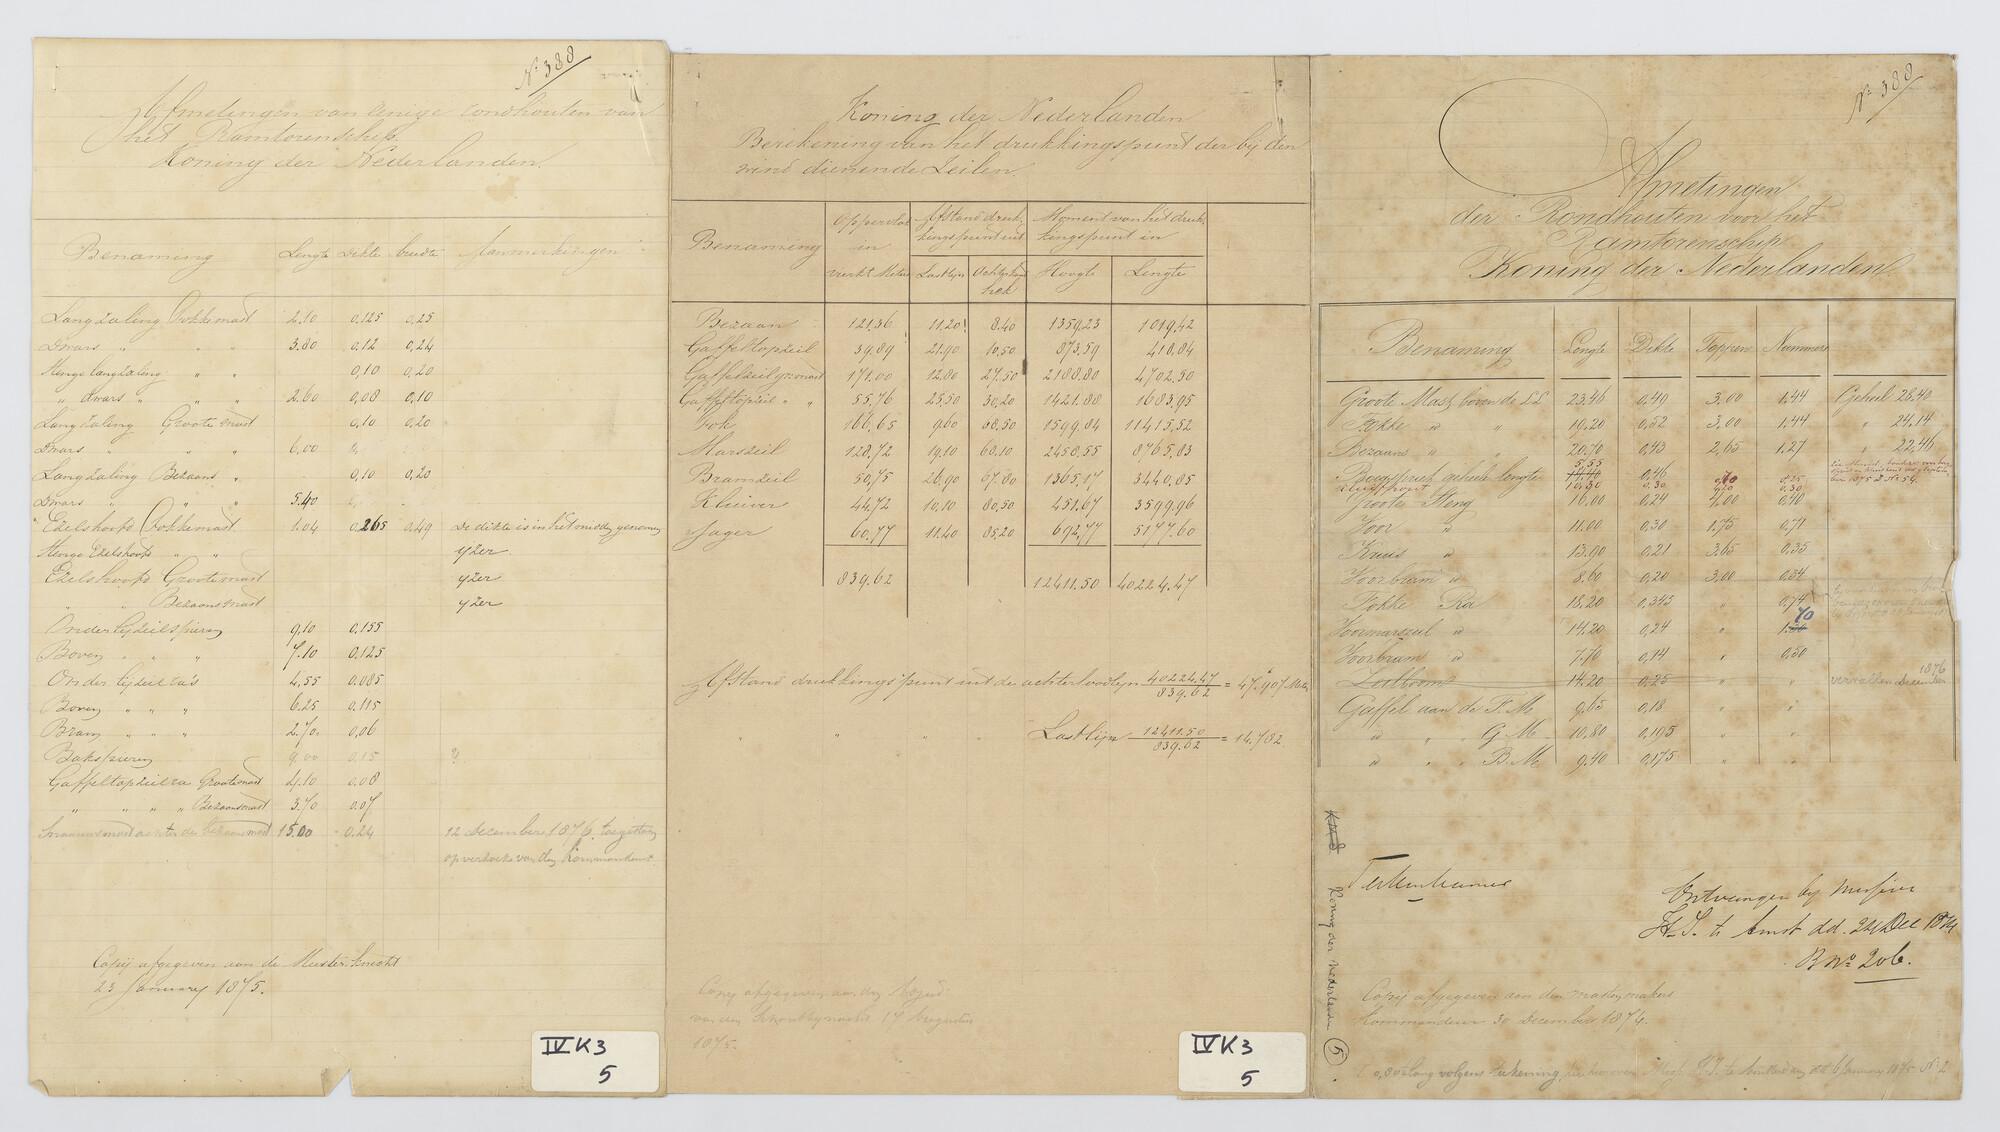 No 388
Afmetingen van eenige rondhouten van
het Ramtorenschip
Koning der Nederlanden.
Benaming Lengte Dikte breedte Aanmerkingen
Langzaling Fokkemast 2.10 0,125 0,25
Dwars " " " 3.80 0,12 0,24
Stenge langzaling " " 0,10 0,20
" dwars " " " 2.60 0,08 0,10
Langzaling Groote mast 0,10 0,20
Dwars " " " 6.00 "
Langzaling Bezaans " 0,10 0,20
Dwars " " " 5.40 "
Ezelshoofd Fokkemast 1.04 0.265 0,49 De dikte is in het midden genomen
Stenge Ezelshoofd " " yzer
Ezelshoofd Grootemast yzer
" " Bezaansmast yzer
Onderlijzeilspieren 9.10 0.155
Boven " " " 7.10 0.125
Onder lijzeilra's 4.55 0.085
Boven " " " 6.25 0.115
Bram " " " 2.70 0,06
Bakspieren 9.00 0.15 ?
Gaffeltopzeilra Grootemast 4.10 0.08
" " " " Bezaansmast 3.70 0.07
achter de bezaansmast 15.00 0.24 12 December 1876
op verzoek van den Kommandant
Copij afgegeven aan de Meesterknecht
23 January 1875.
IV K3
5
Koning der Nederlanden
Berekening van het drukkingspunt der bij den
wind dienende Zeilen.
Benaming Oppervlak in vierkt Meters Afstand drukkingspunt uit Moment van het drukkingspunt in
Lastlijn Hoogte Lengte
Bezaan 121.36 11.20 8.40 1359.23 1019.42
Gaffeltopzeil 39.89 21.90 10.50 873.59 418.84
Gaffelzeil gr. mast 171.00 12.80 27.50 2188.80 4702.50
Gaffeltopzeil " " 55.76 25.50 30.20 1421.88 1683.95
Fok 166.65 9.60 68.50 1599.84 11415.52
Marszeil 128.72 19.10 68.10 2458.55 8765.83
Bramzeil 50.75 26.90 67.80 1365.17 3440.85
Kluiver 44.72 10.10 80.50 451.67 3599.96
Jager 60.77 11.40 85.20 692.77 5177.60
839.62 12411.50 40224.47
Afstand drukkingspunt uit de achterloodlijn 40224.47 / 839.62 = 47.907 Met.
" " " " Lastlijn 12411.50 / 839.62 = 14.782
Copij afgegeven aan
van den 14 Augustus
1875.
IV K3
5
No 388
Afmetingen
der Rondhouten voor het
Ramtorenschip
Koning der Nederlanden
Benaming Lengte Dikte Toppen Nummers
Groote Mast boven de LL 23.46 0,40 3.00 1.44 Geheel 28.40
Fokke " " 19.20 0,52 3,00 1.44 " 24,14
Bezaans " " 20.70 0,43 2,65 1.27 " 22.46
Boegspriet geheele lengte 5,55 0,46
Kluifhout 10,30 0.30
Groote Steng 16.00 0.24 4.00 0,40
Voor " 11.00 0,30 1.75 0,71
Kruis " 13.90 0,21 3.65 0.35
Voorbram " 8.60 0,20 3,00 0.34
Fokke Ra 18.20 0,345 " 0,74
Voormarszeil " 14.20 0,24 " 70
Voorbram " 7.70 0,14 " 0,50
14.20 0,25 " " vervallen December 1876
Gaffel aan de F. M. 9.65 0,18 " "
" " " G. M. 10.80 0,195 " "
" " " B. M. 9.40 0,175 " "
Koning der Nederlanden
5
Ontvangen bij missive
H. I. te Amst dd. 24 Dec 1874
B No 206.
Copij afgegeven aan den mastenmakers
Kommandeur 30 December 1874.
volgens tekening